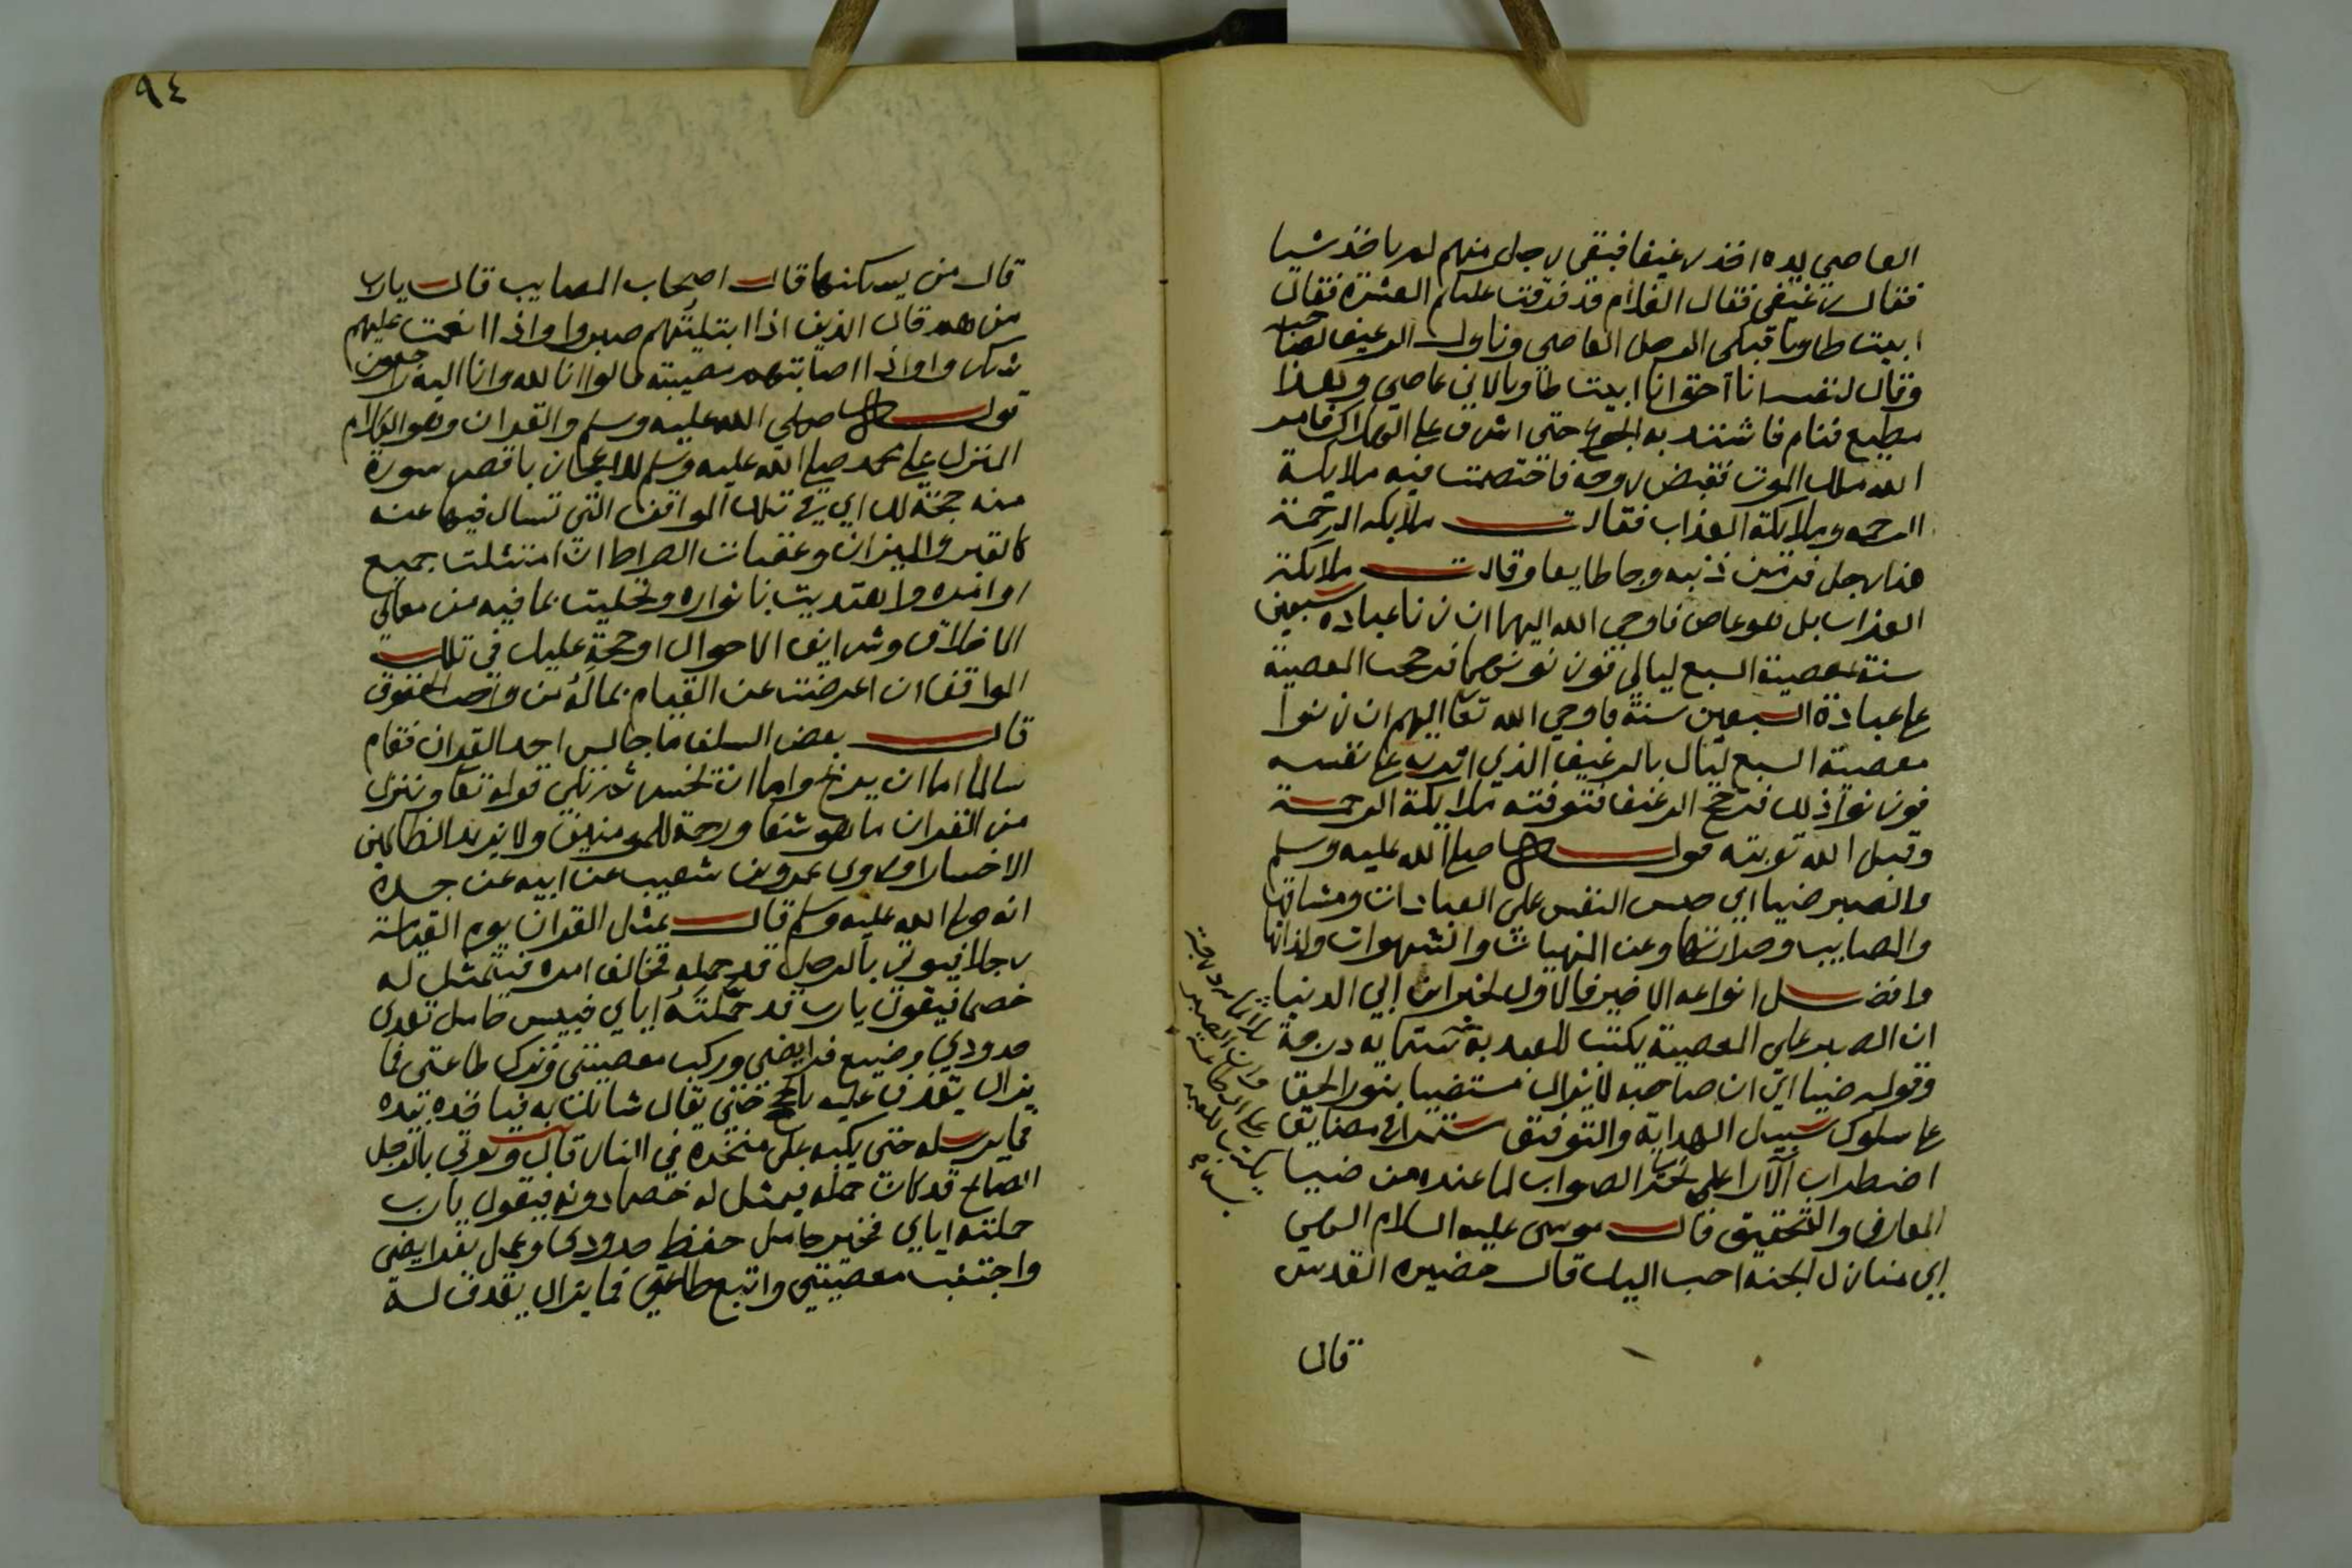 العاصي يده اخذ رغيفا فبقى رجل منهم لم ياخذ شيا
فقال رغيفى فقال الغلام قد فرقت عليكم العشرة فقال
ابيت طاويا فبكى الرجل العاصي وناول الرغيف لصاحبه
وقال لنفسه انا احق انا ابيت طاويا لاني عاصي وهذا
مطيع فنام فاشتد به الجوع حتى اشرف على الهلاك فامر
الله ملك الموت فقبض روحه فاختصمت فيه ملايكة
الرحمه وملايكة العذاب فقالت ملايكه الرحمة
هذا رجل فر من ذنبه وجا طايعا وقالت ملايكة
العذاب بل هو عاص فاوحى الله اليهما ان زنا عبادة سبعين
سنة بمعصية السبع ليالي فوزنوهما فرجحت المعصية
على عبادة السبعين سنة فاوحى الله تعا اليهم ان زنوا
معصية السبع ليال بالرغيف الذي اثر به على نفسه
فوزنوا ذلك فرجح الرغيف فتوفته ملايكة الرحمة
وقبل الله توبته قوله صلى الله عليه وسلم
والصبر ضيا اي حبس النفس على العبادات ومشاقها
والمصايب وحرارتها وعن المنهيات والشهوات ولذاتها
وافضل انواعه الاخير فالاول لخبر ابن ابي الدنيا
ان الصبر على المصيبة يكتب للعبد به ستماية درجة
وقوله ضيا اي ان صاحبه لا يزال مستضيا بنور الحق
على سلوك سبيل الهداية والتوفيق مستمرا في مضايق
اضطراب الارا على تحري الصواب لما عنده من ضيا
المعارف والتحقيق قال موسى عليه السلام الهي
اي منازل الجنة احب اليك قال حضيرة القدس
قال
ثلاثماية درجة
وان الصبر
على الطاعة
يكتب للعبد
به ستماية
٩٤
قال من يسكنها قال اصحاب المصايب قال يارب
من هم قال الذين اذا ابتليتهم صبروا واذا انعمت عليهم
شكروا واذا اصابتهم مصيبة قالوا انا لله وانا اليه راجعون
قوله صلى الله عليه وسلم والقران وهو الكلام
المنزل على محمد صلى الله عليه وسلم للاعجاز باقصر سورة
منه حجة لك اي في تلك المواقف التي تسال فيها عنه
كالقبر والميزان وعقبات الصراط ان امتثلت جميع
اوامره واهتديت بانواره وتحليت بما فيه من معالي
الاخلاق وشرايف الاحوال او حجة عليك في تلك
المواقف ان اعرضت عن القيام بماله من واجب الحقوق
قال بعض السلف ما جالس احد القران فقام
سالما اما ان يربح واما ان يخسر ثم تلى قوله تعا وننزل
من القران ما هو شفا ورحمة للمومنين ولا يزيد الظالمين
الا خسارا وروى عمرو بن شعيب عن ابيه عن جده
انه صلى الله عليه وسلم قال يمثل القران يوم القيامة
رجلا فيوتى بالرجل قد حمله فخالف امره فيتمثل له
خصما فيقول يارب قد حملته اياي فبيس حامل تعدى
حدودي وضيع فرايضي وركب معصيتي وترك طاعتي فما
يزال يقذف عليه بالحجج حتى يقال شانك به فياخذه بيده
فما يرسله حتى يكبه على منخره في النار قال ويوتى بالرجل
الصالح قد كان حمله فيمثل له خصما دونه فيقول يارب
حملته اياي فخير حامل حفظ حدودي وعمل بفرايضي
واجتنب معصيتي واتبع طاعتي فما يزال يقذف له